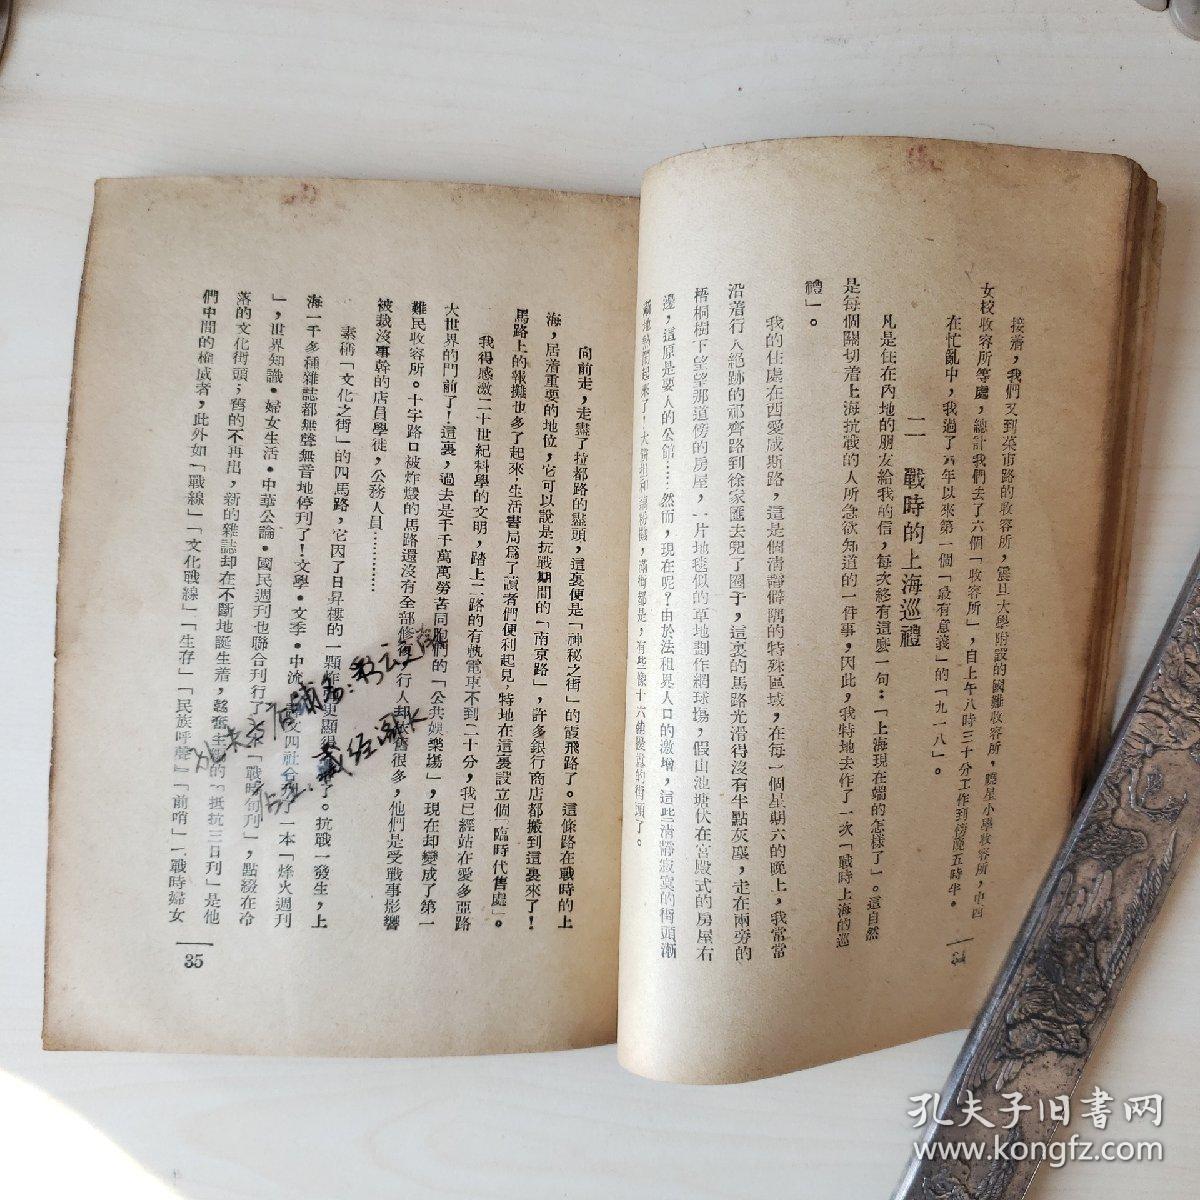 接着，我們又到菜市路的收容所，震旦大學附設的國難收容所，曉星小學收容所，中西
女校收容所等處，總計我們去了六個「收容所」，自上午八時三十分工作到傍晚五時半。
在忙亂中，我過了六年以來第一個「最有意義」的「九一八」。
二　戰時的上海巡禮
凡是住在內地的朋友給我的信，每次終有這麼一句：「上海現在端的怎樣了」。這自然
是每個關切着上海抗戰的人所急欲知道的一件事，因此，我特地去作了一次「戰時上海的巡
禮」。
我的住處在西愛咸斯路，這是個清靜僻隅的特殊區域，在每一個星期六的晚上，我常常
沿着行人絕跡的祁齊路到徐家匯去兜了圈子，這裏的馬路光滑得沒有半點灰塵，走在兩旁的
梧桐樹下望望那道傍的房屋，一片地毯似的草地劃作網球場，假山池塘伏在宮殿式的房屋右
邊，這原是要人的公館……然而，現在呢？由於法租界人口的激增，這些清靜寂寞的街頭漸
漸地熱鬧起來了，大餅攤和
，有些像十六舖
的街頭了。
34
向前走，走盡了拉都路的盡頭，這裏便是「神秘之街」的霞飛路了。這條路在戰時的上
海，居着重要的地位，它可以說是抗戰期間的「南京路」，許多銀行商店都搬到這裏來了！
馬路上的報攤也多了起來，生活書局爲了讀者們便利起見，特地在這裏設立個「臨時代售處」。
我得感激二十世紀科學的文明，踏上二路的有軌電車不到二十分，我已經站在愛多亞路
大世界的門前了！這裏，過去是千千萬萬勞苦同胞們的「公共娛樂場」，現在却變成了第一
難民收容所。十字路口被炸燬的馬路還沒有全部修復，行人却依舊很多，他們是受戰事影響
被裁沒事幹的店員學徒，公務人員…………
素稱「文化之街」的四馬路，它因了日昇樓的一顆炸
更顯得
了。抗戰一發生，上
海一千多種雜誌都無聲無音地停刊了！文學・文季・中流・
文四社合刊了一本「烽火週刊
」，世界知識・婦女生活・中華公論・國民週刊也聯合刊行了一本「戰時旬刊」，點綴在冷
落的文化街頭；舊的不再出，新的雜誌却在不斷地誕生着，鄒奮主編的「抵抗三日刊」是他
們中間的權威者，此外如「戰線」「文化戰線」「生存」「民族呼聲」「前哨」「戰時婦女
35
孔夫子旧书网
www.kongfz.com